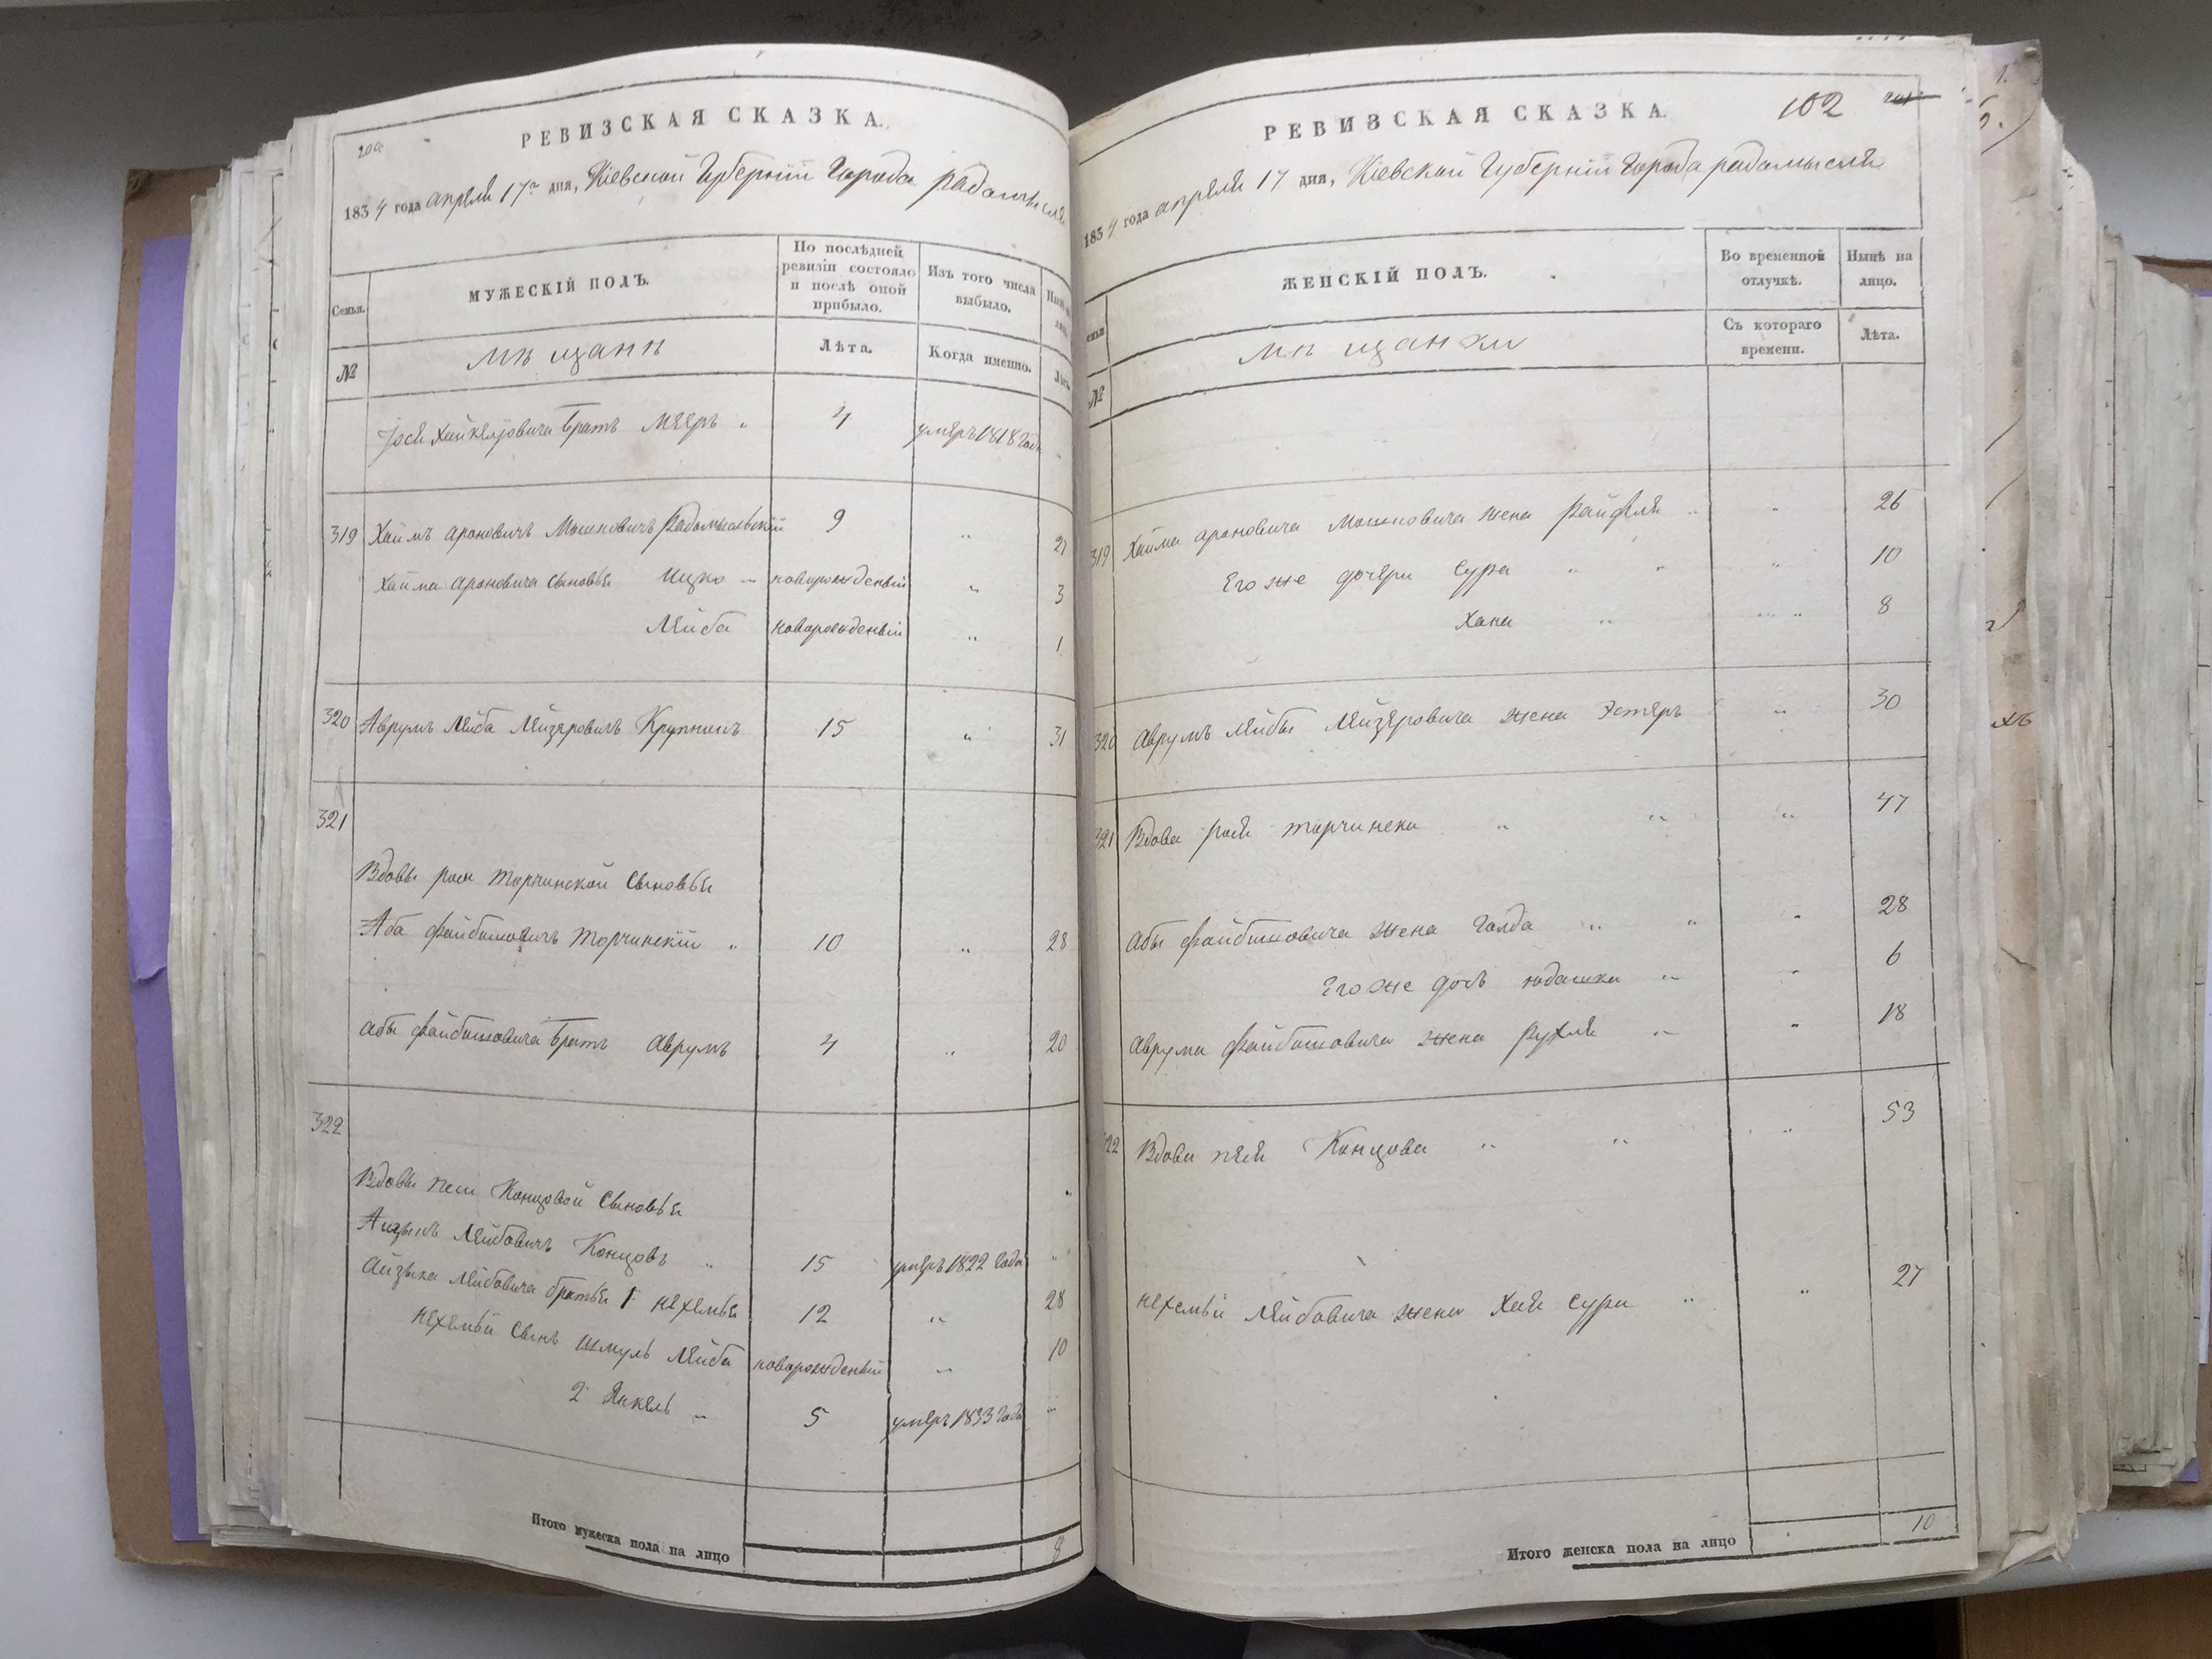 200
РЕВИЗСКАЯ СКАЗКА.
1834 года апреля 17го дня, Кіевской Губерніи Города радомысля
Семьи.
МУЖЕСКІЙ ПОЛЪ.
По послѣдней ревизіи состояло и послѣ оной прибыло.
Изъ того числа выбыло.
№
мѣщанѣ
Лѣта.
Когда именно.
Іося Хайкелювича братъ Мееръ 4 умеръ 1818 года
319 Хаимъ Ароновичъ Мошковичъ Радомысльскій 9 21
Хаима Ароновича сыновья Ицко новорожденый 3
Лейба новорожденый 1
320 Аврумъ Лейба Лейзеровичъ Крупникъ 15 31
321
Вдовы раси Торчинской сыновья
Аба Файбишовичъ Торчинскій 10 28
Абы Файбишовича братъ Аврумъ 4 20
322
Вдовы песи Концовой сыновья
Айзыкъ Лейбовичъ Концовъ 15 умеръ 1822 года
Айзыка Лейбовича братья 1 Нехемья 12 28
Нехемьи сынъ Шмуль Лейба новорожденый 10
2 Янкель 5 умеръ 1833 года
Итого мужеска пола на лицо 8
РЕВИЗСКАЯ СКАЗКА.
102
1834 года апреля 17 дня, Кіевской Губерніи Города радомысля
ЖЕНСКІЙ ПОЛЪ.
Во временной отлучкѣ.
Нынѣ на лицо.
№
мѣщанки
Съ котораго времени.
Лѣта.
319 Хаима Ароновича Мошковича жена Райфля 26
Его же дочери Сура 10
Хана 8
320 Аврумъ Лейбы Лейзеровича жена Эстеръ 30
321 Вдова рася Торчинска 47
Абы Файбишовича жена Голда 28
Его же дочь юдашка 6
Аврума Файбишовича жена Рухля 18
322 Вдова песя Концова 53
Нехемьи Лейбовича жена Хая Сура 27
Итого женска пола на лицо 10